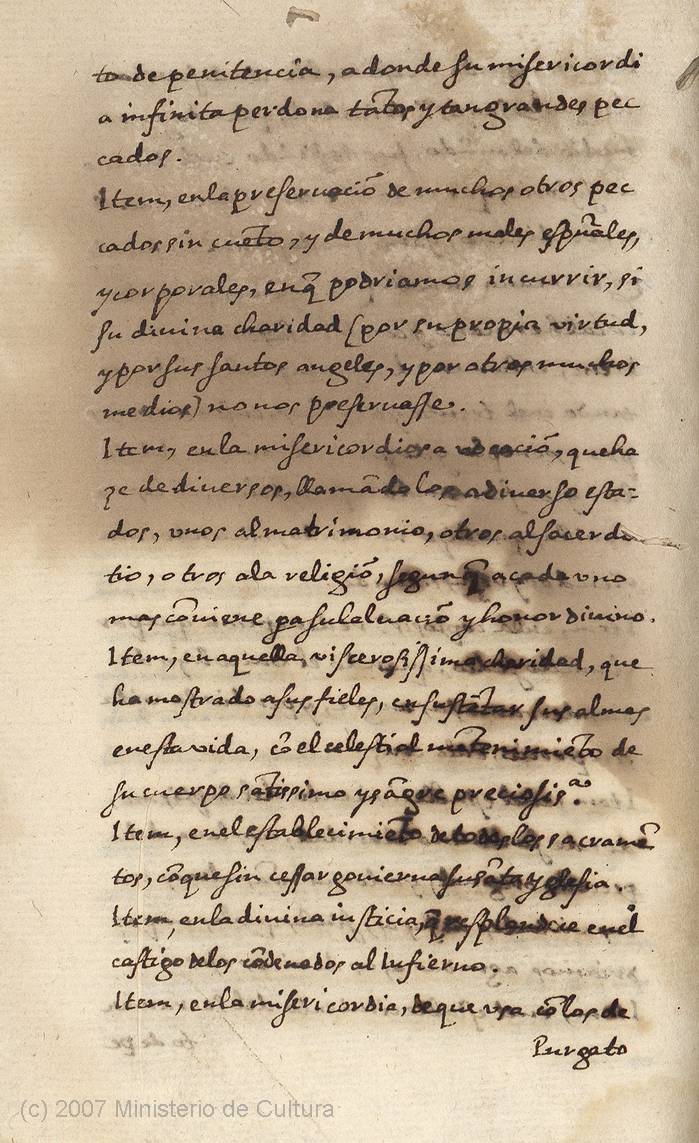 to de penitencia, a donde su misericordi
a infinita perdona tātos y tan grandes pec
cados.
Item, en la preseruaciō de muchos otros pec
cados sin cuēto, y de muchos males espūales,
y corporales, en q̄ podriamos incurrir, si
su diuina charidad (por su propia virtud,
y por sus santos angeles, y por otros muchos
medios) no nos preseruasse.
Item, en la misericordiosa vocaciō, que ha
ze de diuersos, llamādolos a diuerso esta=
dos, vnos al matrimonio, otros al sacerdo
tio, otros a la religiō, segun q̄ a cada vno
mas cōuiene pa su saluaciō y honor diuino.
Item, en aquella viscerosissima charidad, que
ha mostrado a sus fieles, en sustētar sus almas
en esta vida, cō el celestial mātenimiēto de
su cuerpo sātissimo y sāgre preciosis.ª
Item, en el establecimiēto de todos los sacramē
tos, cō que sin cessar gouierna su sāta yglesia.
Item, en la diuina iusticia, q̄ resplandece en el
castigo de los cōdenados al Infierno.
Item, en la misericordia, de que vsa cō los de
Purgato
(c) 2007 Ministerio de Cultura